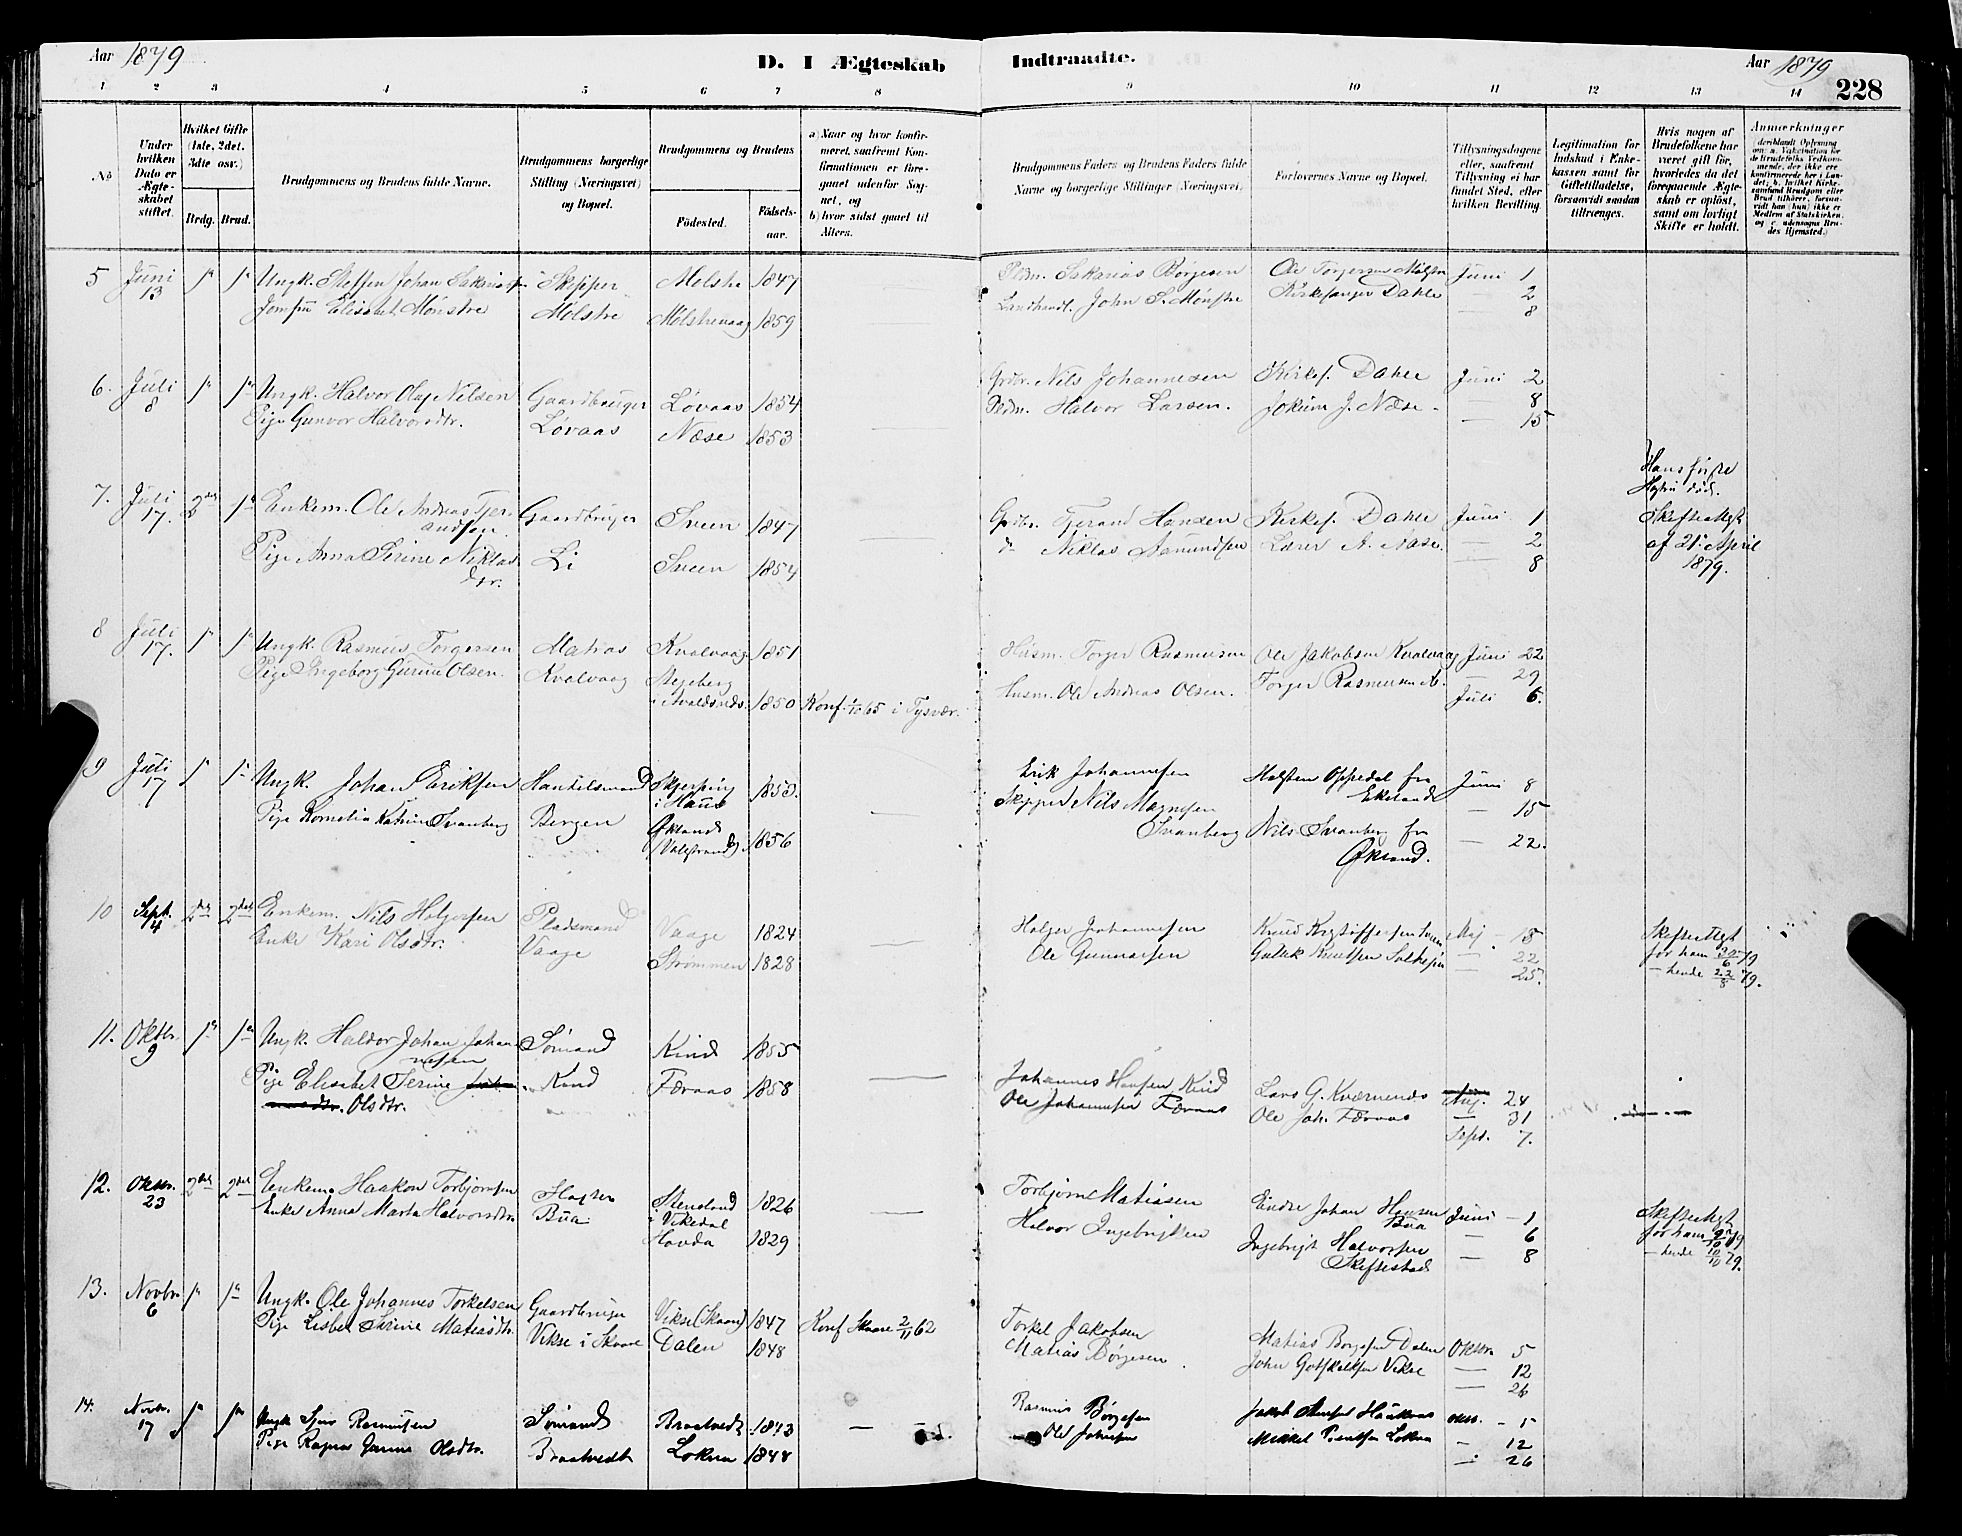 Aar 1879
D. I Ægteskab Indtraadte.
Aar 1879
228
1 2 3 4 5 6 7 8 9 10 11 12 13 14
No
Under hvilken Dato er Ægteskabet stiftet.
Hvilket Gifte (1ste, 2det, 3die osv.)
Brdg. Brud.
Brudgommens og Brudens fulde Navne.
Brudgommens borgerlige Stilling (Næringsvei) og Bopæl.
Brudgommens og Brudens
Födested.
Födselsaar.
a) Naar og hvor konfirmeret, saafremt Konfirmationen er foregaaet udenfor Sognet, og
b) hvor sidst gaaet til Alters.
Brudgommens Faders og Brudens Faders fulde Navne og borgerlige Stillinger (Næringsvei).
Forlovernes Navne og Bopæl.
Tillysningsdagene eller, saafremt Tillysning ei har fundet Sted, efter hvilken Bevilling.
Legitimation for Indskud i Enkekassen samt for Giftetilladelse, forsaavidt saadan tiltrænges.
Hvis nogen af Brudefolkene har været gift før, hvorledes da det foregaaende Ægteskab er oplöst, samt om lovligt Skifte er holdt.
Anmærkninger
5 Juni 13 1ste 1ste Ungk. Steffen Johan Sakariassen Skipper Mølstre 1847 Pldm. Sakarias Børgesen Ole Torgersen Mølstre Juni 1
Jomfru Elisabet Mønstre Mølstre Mølstrevaag 1859 Landhandl. John S. Mønstre Kirkesanger Dahle — 2
— 8
6. Juli 8 1ste 1ste Ungk. Halvor Olaj Nilsen Gaardbruger Løvaas 1854 Grdbr. Nils Johannesen Kirkes. Dahle Juni 2
Pige Gunvor Halvorsdtr. Løvaas Næse 1853 Pldm. Halvor Larsen. Jokum J. Næse. — 8
— 15
7. Juli 17. 2det 1ste Enkem. Ole Andreas Tjerandsen Gaardbruger Sveen 1847 Grdbr. Tjerand Hansen Kirkes. Dahle Juni 1
Pige Anna Serine Niklasdtr. Li Sveen 1854 do Niklas Asmundsen Lærer A. Næse. — 2
— 8
Hans første Hustru død.
Skifteattest
af 21. April
1879.
8 Juli 17. 1ste 1ste Ungk. Rasmus Torgersen Matros Kvalvaag 1851 Husm. Torger Rasmussen Ole Jakobsen Kvalvaag Juni 22
Pige Ingeborg Gurine Olsen. Kvalvaag Stegeberg i Avaldsnds. 1850 Konf. 1/10 65 i Tysvær. Husm. Ole Andreas Olsen. Torger Rasmussen — 29
Juli 6.
9 Juli 17 1ste 1ste Ungk. Johan Eriksen Handelsmand i Haus 1853. Erik Johannesen Halsten Oppedal fra Ekeland Juni 8
Pige Kornelia Katrine Svanberg Bergen Økland (Valestrand). 1856 Skipper Nils Magnesen Svanberg Nils Svanberg fra Økland. — 15
— 22.
10 Sept. 4 2det 2det Enkem. Nils Holgersen Pladsmand Vaage 1824 Holger Johannesen Knud Kristoffersen Maj — 15
Enke Kari Olsdtr. Vaage Strømmen 1828 Ole Gunnarsen Gulak Knutsen — 22
— 25.
Skifteattest
for ham 30/6 79
— hende 22/8 79.
11. Oktbr. 9 1ste 1ste Ungk. Haldor Johan Johannesen Sømand Kind 1855 Johannes Hansen Kind Lars G. Kværnenes Aug. 24
Pige Elisabet Serine Olsdtr. Kind Færaas 1858 Ole Johannesen Færaas Ole Joh. Færaas — 31
Sept. 7.
12. Oktbr. 23 2det 2det Enkem. Haakon Torbjørnsen Stensland i Vikedal 1826 Torbjørn Matiasen Endre Johan Hansen Bua Juni — 1
Enke Anna Marta Halvorsdtr. Bua Hovda 1829 Halvor Ingebrigtsen Ingebrigt Halvorsen Skiftestad — 6
— 8
Skifteattest
for ham 79
— hende 10/10 79.
13. Novbr. 6 1ste 1ste Ungk. Ole Johannes Torkelsen Gaardbruger Vikse (Skaare) 1847 Konf Skaare 2/11 62 Torkel Jakobsen Matias Børgesen Dalen Oktbr. 5
Pige Lisbet Serine Matiasdtr. Vikse i Skaare Dalen 1848 Matias Børgesen. John Gotskalksen Vikse — 12
— 26
14. Novbr. 17 1ste 1ste Ungk Sjur Rasmussen Sømand Braatvedt 1843 — Rasmus Børgesen Jakob Haukaas oktbr. — 5
Pige Ragna Gurine Olsdtr. Braatvedt Lokna 1848 Ole Johnsen Mikkel Lokna — 12
— 26